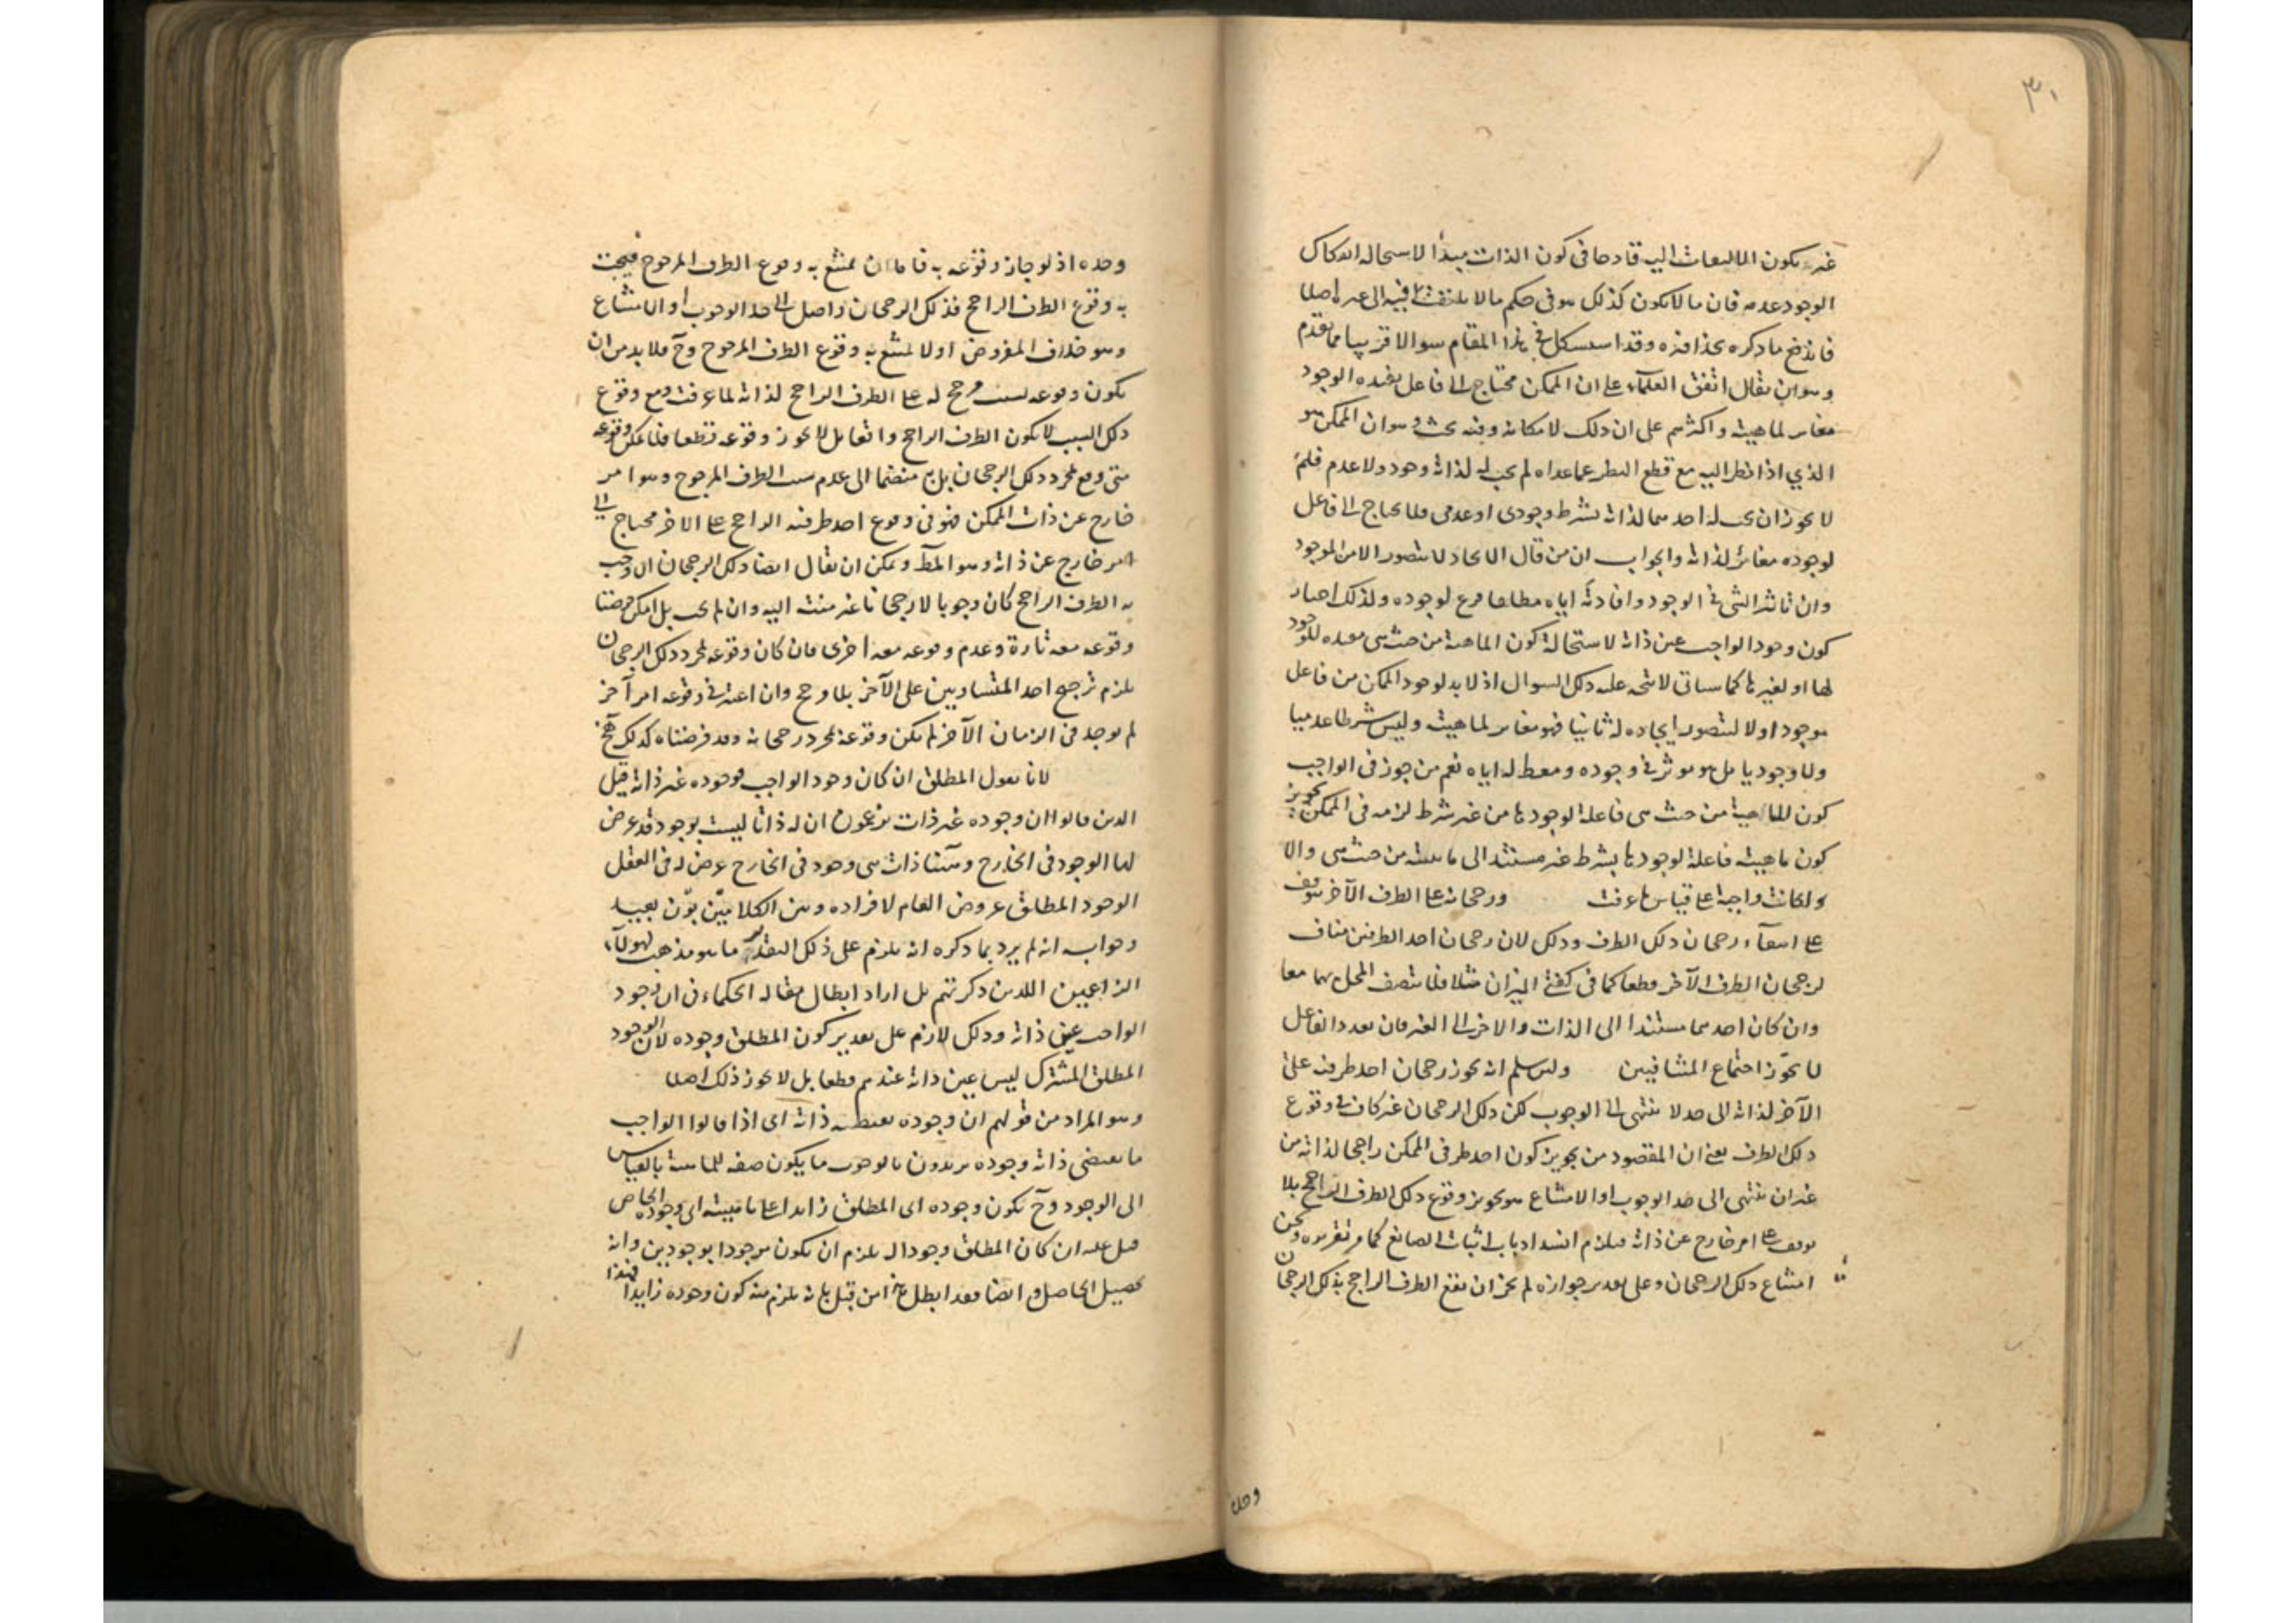 ٣٠
غير يكون الالتفات اليه قادحا فى كون الذات مبدأ لاستحالة انفكاك
الوجود عدمه فان ما لا يكون كذلك هو فى حكم ما لا يلتفت فيه الى غيره اصلا
فاندفع ما ذكره بحذافيره وقد استشكل فى هذا المقام سوالا قريبا مما تقدم
وهو ان يقال اتفق العلماء على ان الممكن محتاج الى فاعل يفيده الوجود
مغاير لماهيته واكثرهم على ان ذلك لامكانه وفيه بحث وهو ان الممكن هو
الذي اذا نظر اليه مع قطع النظر عما عداه لم يجب له لذاته وجود ولا عدم فلم
لا يجوز ان يجب له احدهما لذاته بشرط وجودى او عدمى فلا يحتاج الى فاعل
لوجوده مغاير لذاته والجواب ان من قال الايجاد لا يتصور الا من الموجود
وان تاثير الشى فى الوجود وافادته اياه مطلقا فرع لوجوده ولذلك اختار
كون وجود الواجب عين ذاته لاستحالة كون الماهية من حيث هى مفيده للوجود
لها او لغيرها كما سياتى لا يتجه عليه ذلك السوال اذ لا بد لوجود الممكن من فاعل
موجود اولا ليتصور ايجاده له ثانيا فهو مغاير لماهيته وليس شرطا عدميا
ولا وجوديا بل هو موثر فى وجوده ومعط له اياه نعم من جوز فى الواجب
كون الماهية من حيث هى فاعلة لوجودها من غير شرط لزمه فى الممكن تجويز
كون ماهيته فاعلة لوجودها بشرط غير مستند الى ماهيته من حيث هى والا
لكانت واجبة على قياس ما عرفت ورجحانه على الطرف الآخر يتوقف
على انتفاء رجحان ذلك الطرف وذلك لان رجحان احد الطرفين مناف
لرجحان الطرف الآخر قطعا كما فى كفتى الميزان مثلا فلا يتصف المحل بهما معا
وان كان احدهما مستندا الى الذات والاخر الى الغير فان تعدد الفاعل
لا يجوز اجتماع المتنافيين ولئن سلم انه يجوز رجحان احد طرفيه على
الآخر لذاته الى حد لا ينتهى الى الوجوب لكن ذلك الرجحان غير كاف فى وقوع
ذلك الطرف يعنى ان المقصود من تجويز كون احد طرفى الممكن راجحا لذاته من
غير ان ينتهى الى حد الوجوب او الامتناع هو تجويز وقوع ذلك الطرف الراجح بلا
توقف على امر خارج عن ذاته فيلزم انسداد باب اثبات الصانع كما مر تقريره ونحن
امتناع ذلك الرجحان وعلى تقدير جوازه لم يجز ان يقع الطرف الراجح بذلك الرجحان
وحده
وحده اذ لو جاز وقوعه به فاما ان يمتنع به وقوع الطرف المرجوح فيجب
به وقوع الطرف الراجح فذلك الرجحان واصل الى حد الوجوب او الامتناع
وهو خلاف المفروض او لا يمتنع به وقوع الطرف المرجوح وح فلا بد من ان
يكون وقوعه بسبب مرجح له على الطرف الراجح لذاته لما عرفت ومع وقوع
ذلك السبب لا يكون الطرف الراجح واقعا بل لا يجوز وقوعه قطعا فلا يمكن وقوعه
متى وقع لمجرد ذلك الرجحان بل به منضما الى عدم سبب الطرف المرجوح وهو امر
خارج عن ذات الممكن فهو فى وقوع احد طرفيه الراجح على الاخر محتاج الى
امر خارج عن ذاته وهو المط ويمكن ان يقال ايضا ذلك الرجحان ان وجب
به الطرف الراجح كان وجوبا لا رجحانا غير منته اليه وان لم يجب بل امكن فرضنا
وقوعه معه تارة وعدم وقوعه معه اخرى فان كان وقوعه لمجرد ذلك الرجحان
يلزم ترجيح احد المتساويين على الآخر بلا مرجح وان اعتبر فى وقوعه امر آخر
لم يوجد فى الزمان الآخر لم يكن وقوعه لمجرد رجحانه وقد فرضناه كذلك هف
لانا نقول المطلق ان كان وجود الواجب فوجوده غير ذاته قيل
الذين قالوا ان وجوده غير ذاته يزعمون ان له ذاتا ليست بوجود قد عرض
لها الوجود فى الخارج وهنا ذات هى وجود فى الخارج عرض له فى العقل
الوجود المطلق عروض العام لافراده وبين الكلامين بون بعيد
وجوابه انه لم يرد بما ذكره انه يلزم على ذلك التقدير ما هو مذهب لهولاء
الزاعمين الذين ذكرتهم بل اراد ابطال مقالة الحكماء فى ان وجود
الواجب عين ذاته وذلك لازم على تقدير كون المطلق وجوده لان الوجود
المطلق المشترك ليس عين ذاته عندهم قطعا بل لا يجوز ذلك اصلا
وهو المراد من قولهم ان وجوده يقتضيه ذاته اى اذا قالوا الواجب
ما يقتضى ذاته وجوده يريدون بالوجوب ما يكون صفه للماهية بالقياس
الى الوجود وح يكون وجوده اى المطلق زايدا على ماهيته اى وجوده الخاص
قيل عليه ان كان المطلق وجودا له يلزم ان يكون موجودا بوجودين وانه
تحصيل الحاصل وايضا فقد ابطل هذا من قبل بانه يلزم منه كون وجوده زايدا فهذا